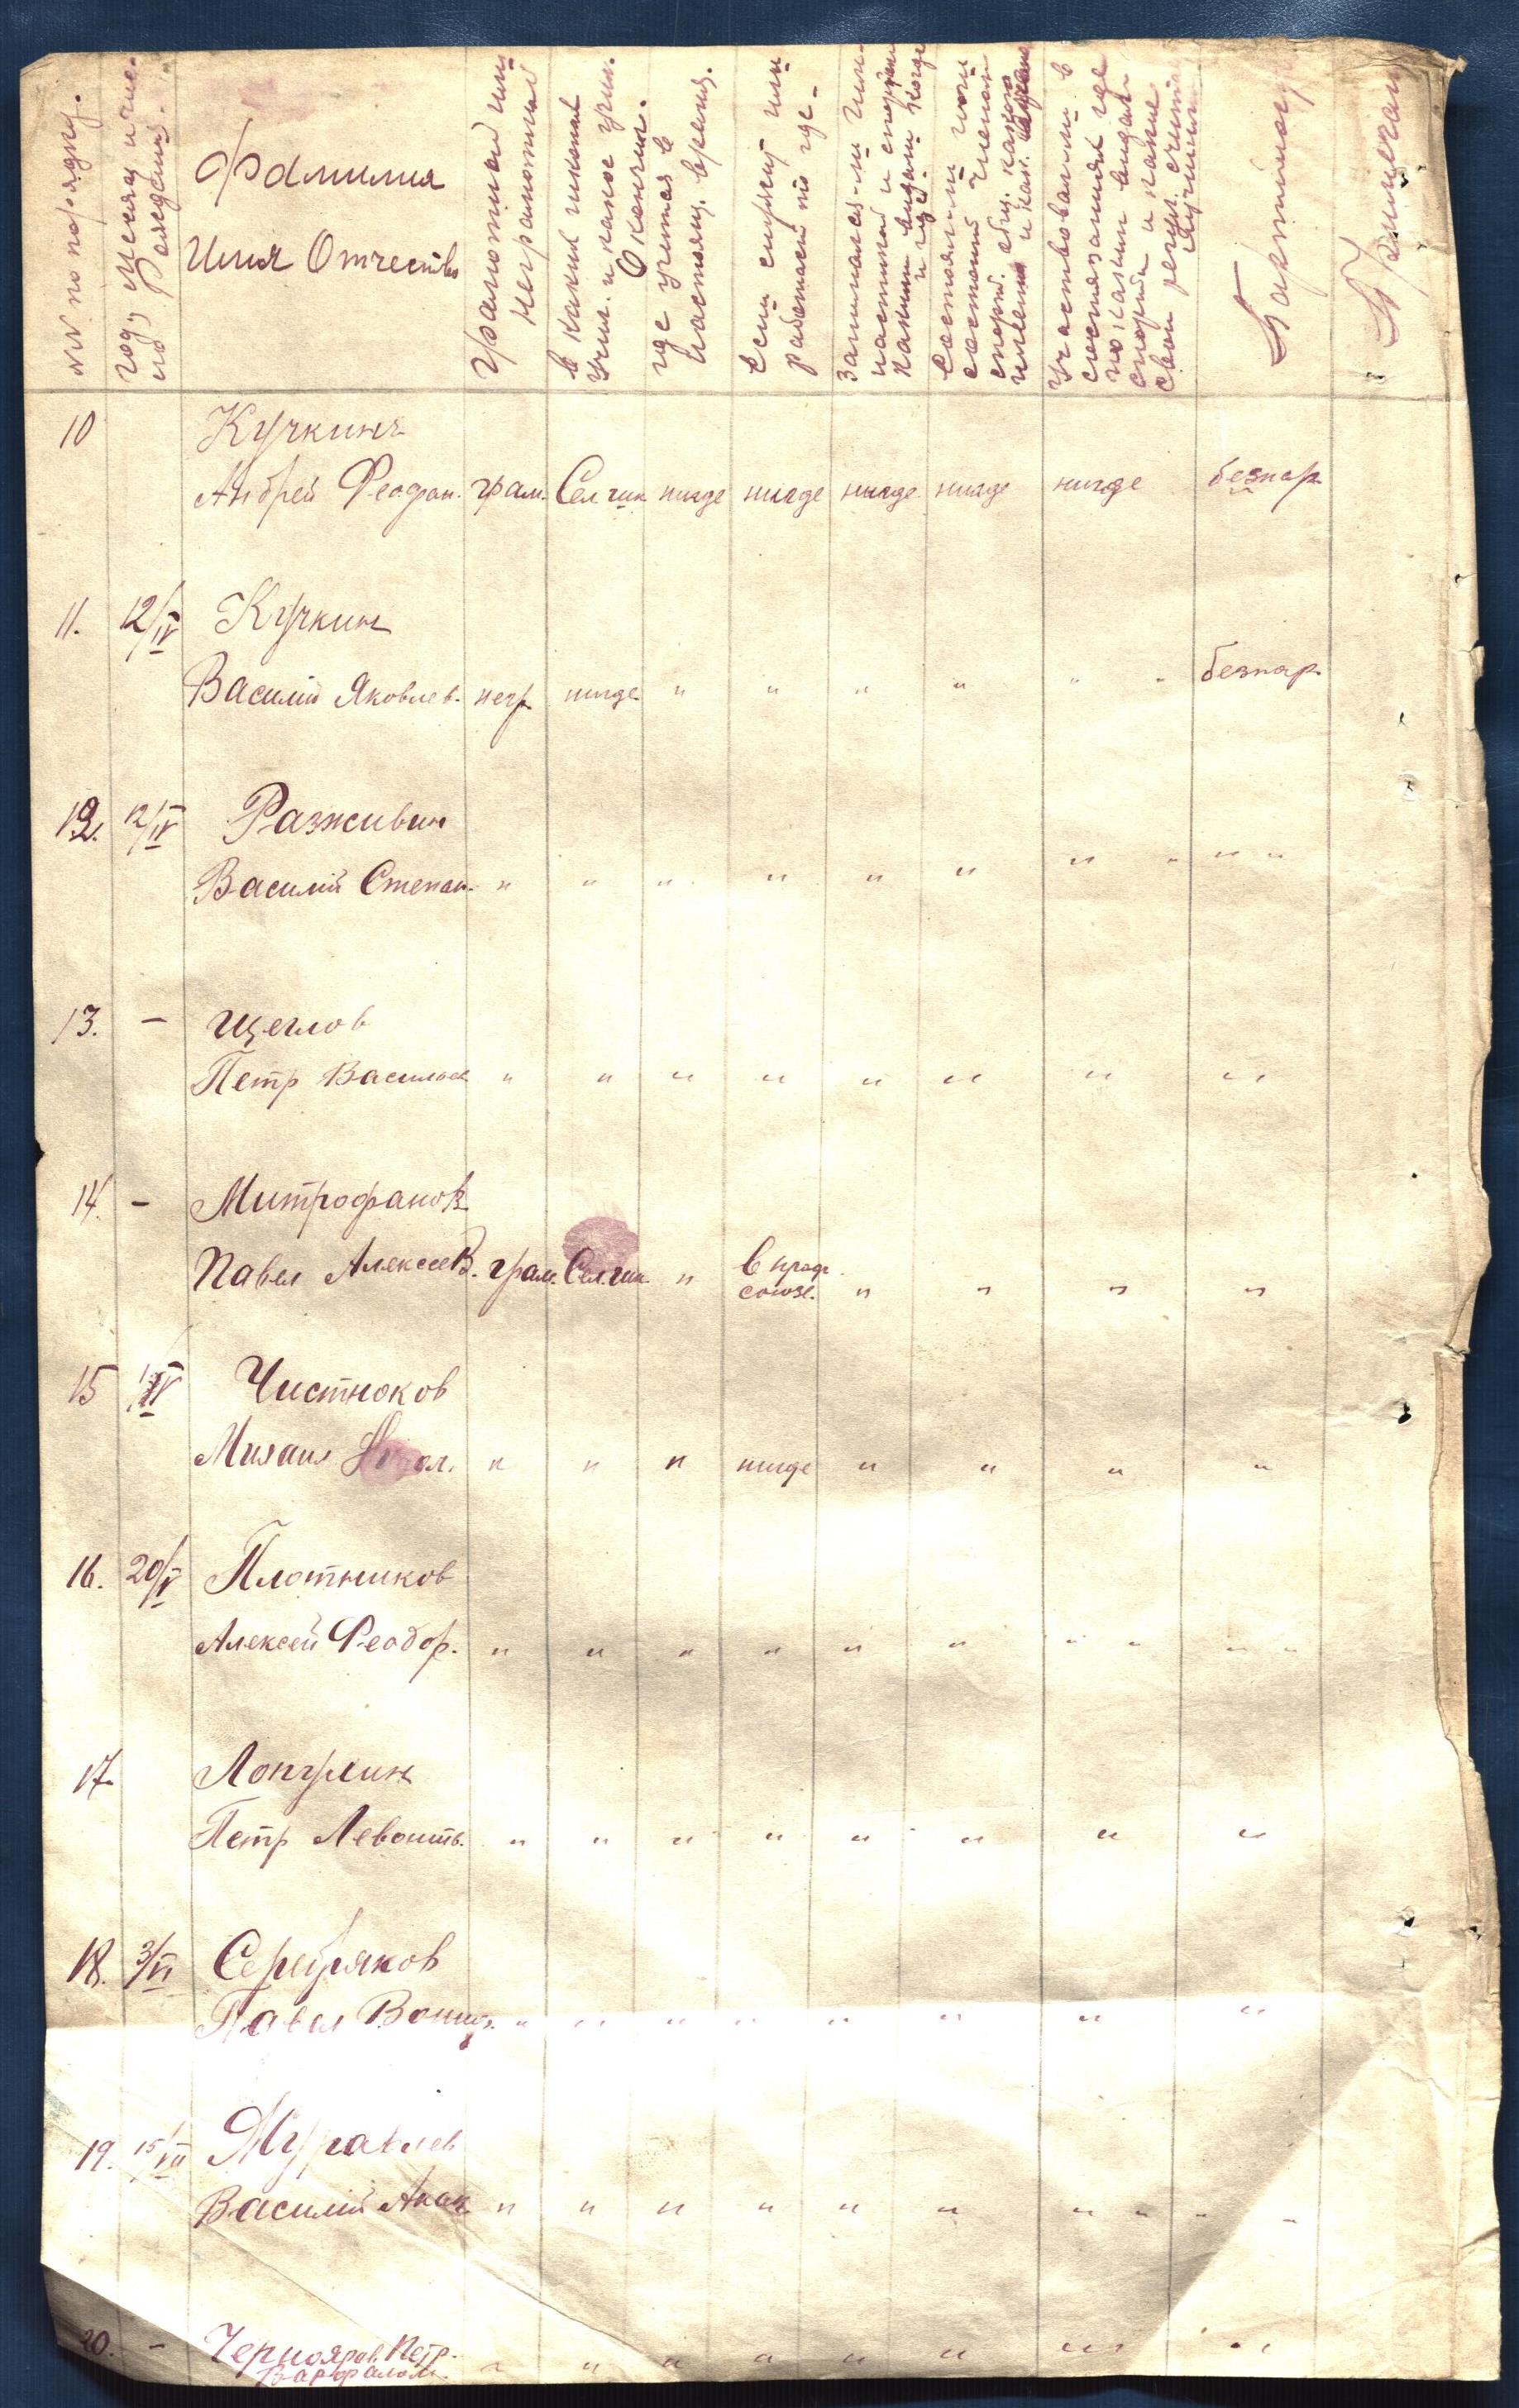 №№ по порядку.
год, месяц и число рождения.
Фамилия
Имя Отчество
Грамотный или
неграмотный
в какой школе
учил. и какое учил.
окончил.
где учится в
настоящ. время.
Если служит или
работает то где.
Занимался-ли гим-
настикой и спортом
какими видами когда
и где.
Состоял-ли или
состоит членом
спорт. общ. какого
и как.
Участвовали в
состязаниях где
по каким видам
спорта и какие
свои резул. счит.
лучшими
Партийност
Примечан
10 Кучкинъ
Андрей Феофан. грам. Селчик нигде нигде нигде нигде нигде безпар
11. 12/IV Кучкин
Василий Яковлев. негр нигде " " " " " " безпар
12. 12/IV Разживин
Василий Степан. " " " " " " " " " "
13. – Щеглов
Петр Васильев " " " " " " " "
14. – Митрофанов
Павел Алексеев. грам. Селчик " в проф.
союзе. " " " "
15 Чистяков
Михаил " " " нигде " " " "
16. 20/V Плотников
Алексей Феодор. " " " " " " " " " "
17 Лопулин
Петр Левонть. " " " " " " " "
18. 3/VI Серебряков
Павел " " " " " " " "
19. 15/VII Муравлев
Василий " " " " " " " " " "
20. – Чернояров Петр.
Варфалом. " " " " " " " "